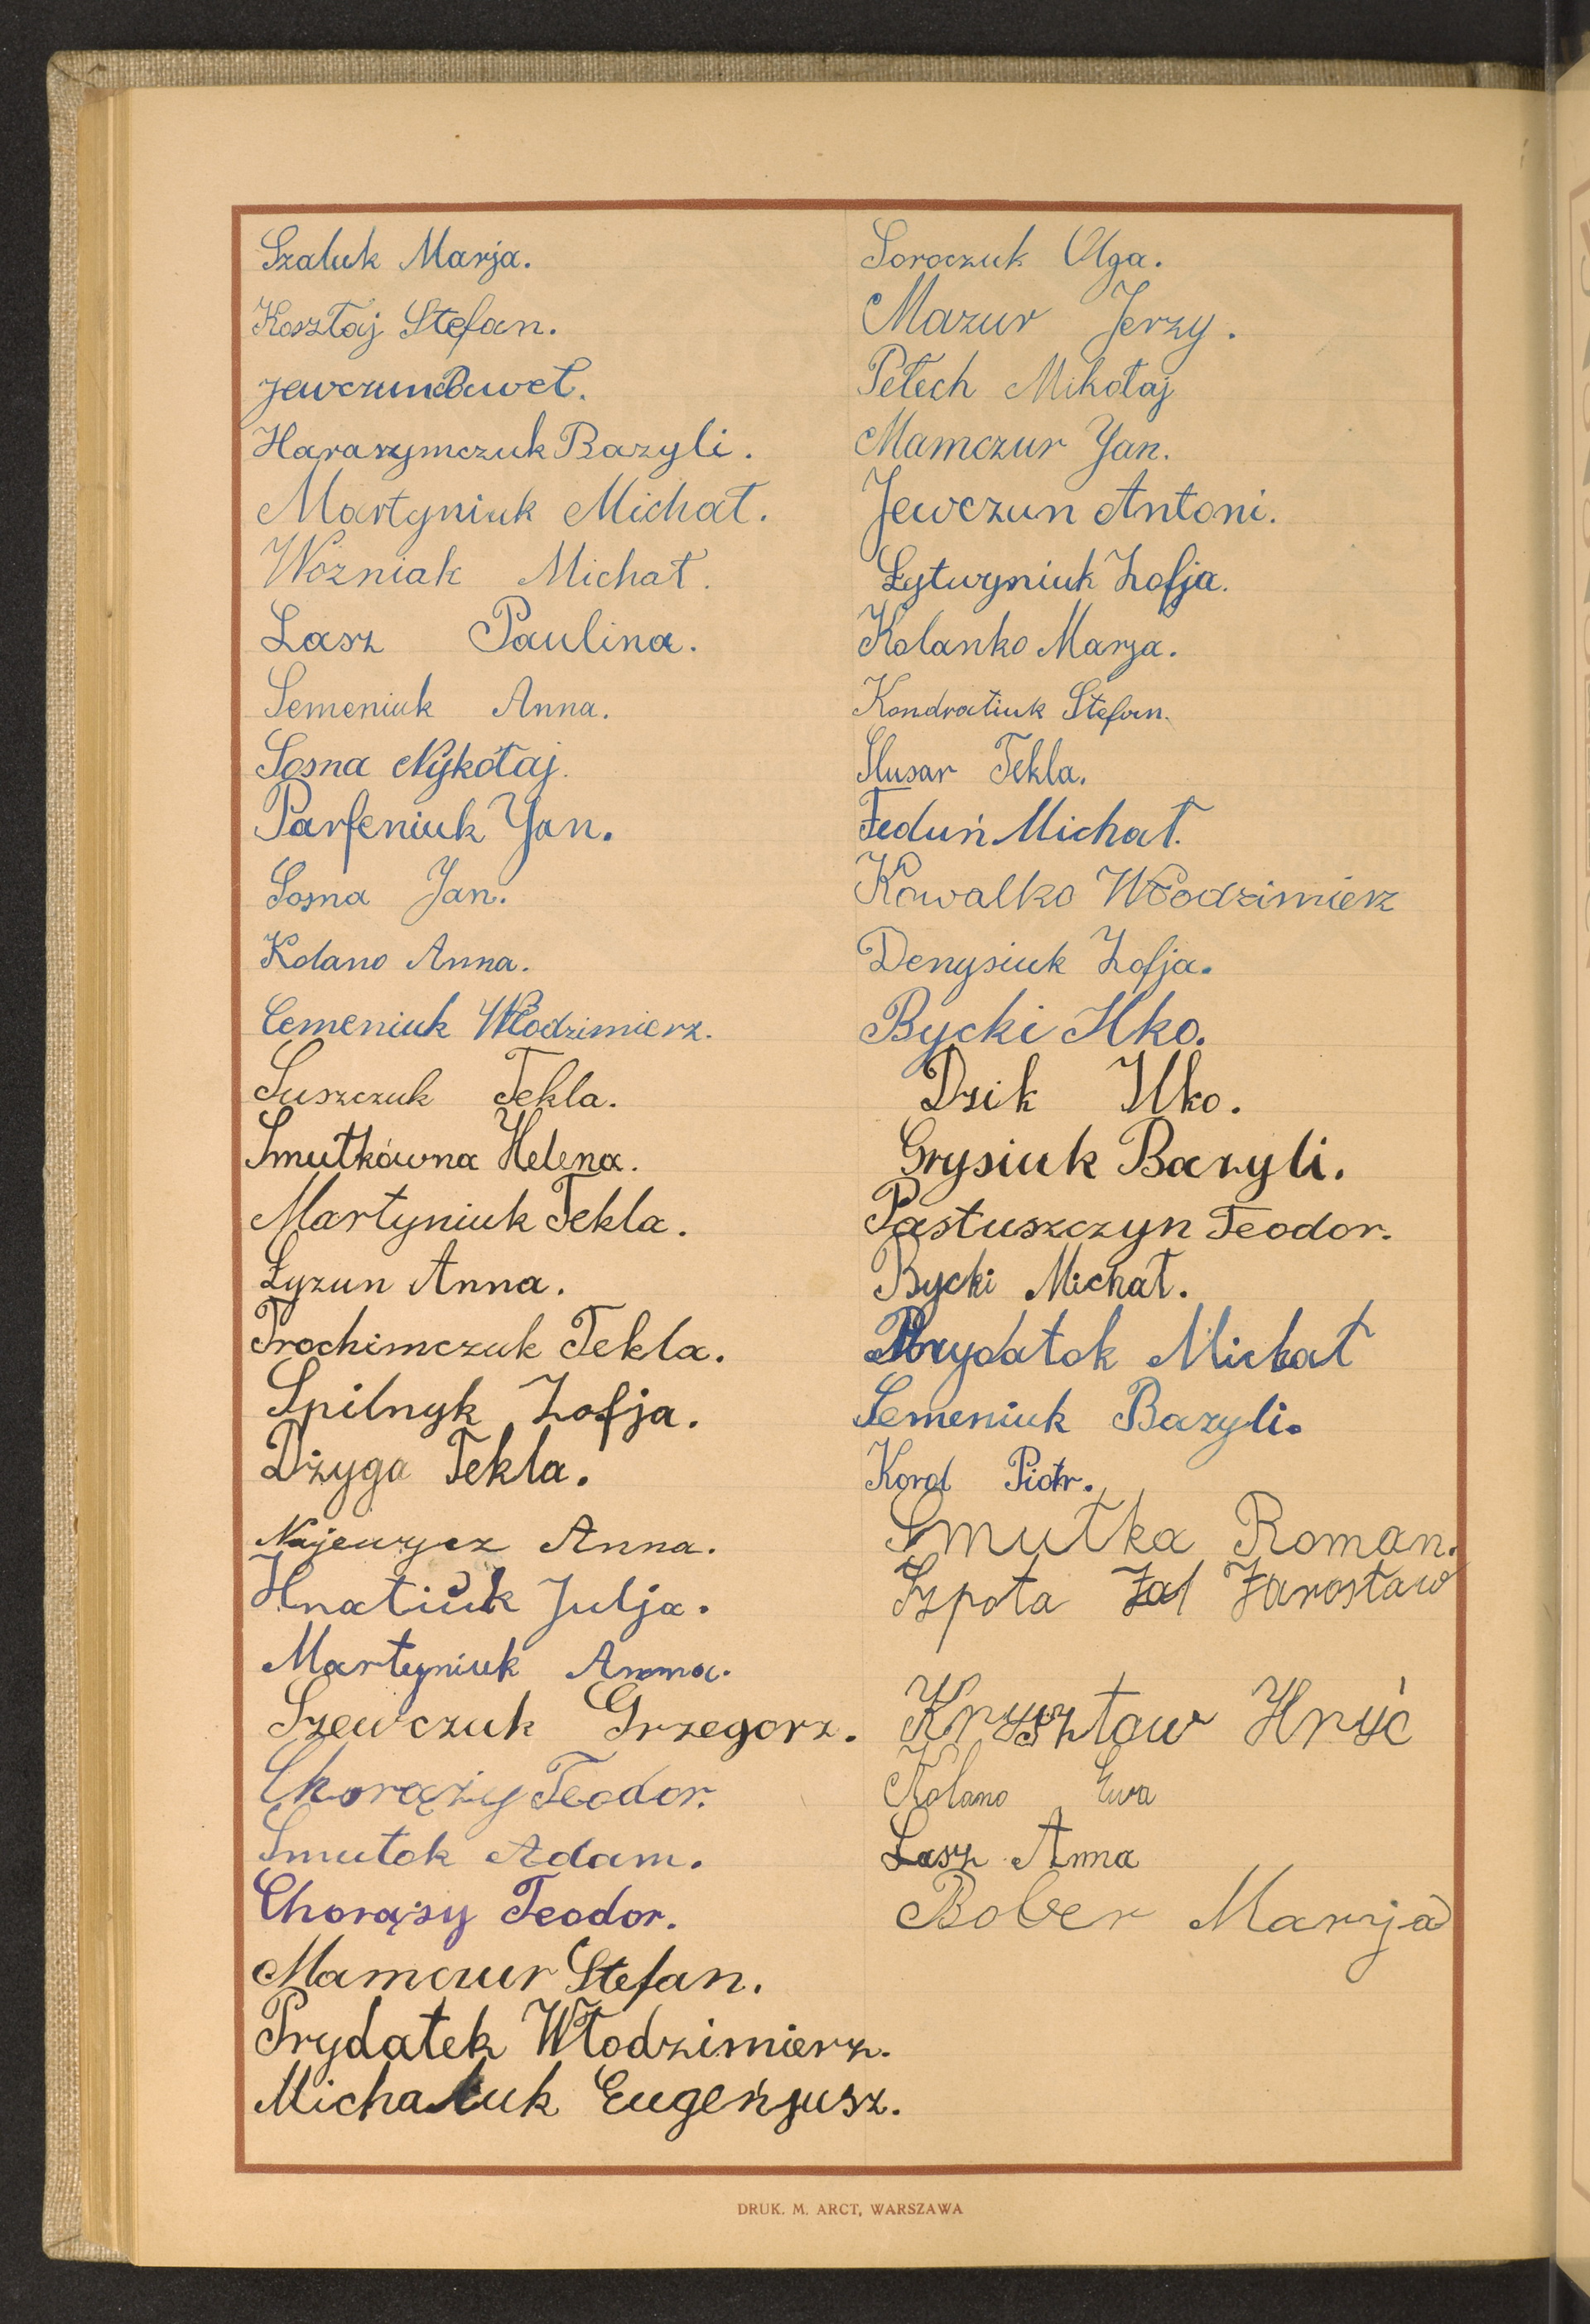 Szaluk Marja.
Kosztaj Stefan.
Jewczun Paweł.
Haraszymczuk Bazyli.
Martyniuk Michał.
Woźniak Michał.
Lasz Paulina.
Semeniuk Anna.
Sosna Nykołaj.
Parfeniuk Jan.
Sosna Jan.
Kolano Anna.
Cemeniuk Włodzimierz.
Suszczuk Tekla.
Smutkówna Helena.
Martyniuk Tekla.
Łyzun Anna.
Trochimczuk Tekla.
Spilnyk Zofja.
Dżyga Tekla.
Najewycz Anna.
Hnatiuk Julja.
Martyniuk Anna.
Szewczuk Grzegorz.
Chorąży Teodor.
Smutok Adam.
Chorąży Teodor.
Mamczur Stefan.
Prydatek Włodzimierz.
Michaluk Eugeńjusz.
Soroczuk Olga.
Mazur Jerzy.
Pełech Mikołaj
Mamczur Jan.
Jewczun Antoni.
Łytwyniuk Zofja.
Kolanko Marja.
Kondratiuk Stefan.
Slusar Tekla.
Feduń Michał.
Kowalko Włodzimierz
Denysiuk Zofja.
Bycki Ilko.
Dzik Ilko.
Grysiuk Bazyli.
Pastuszczyn Teodor.
Bycki Michał.
Prydatok Michał
Semeniuk Bazyli.
Korol Piotr.
Smutka Roman.
Szpota Jarosław
Krysztow Hryć
Kolano Ewa
Lasz Anna
Bober Marja
DRUK. M. ARCT, WARSZAWA